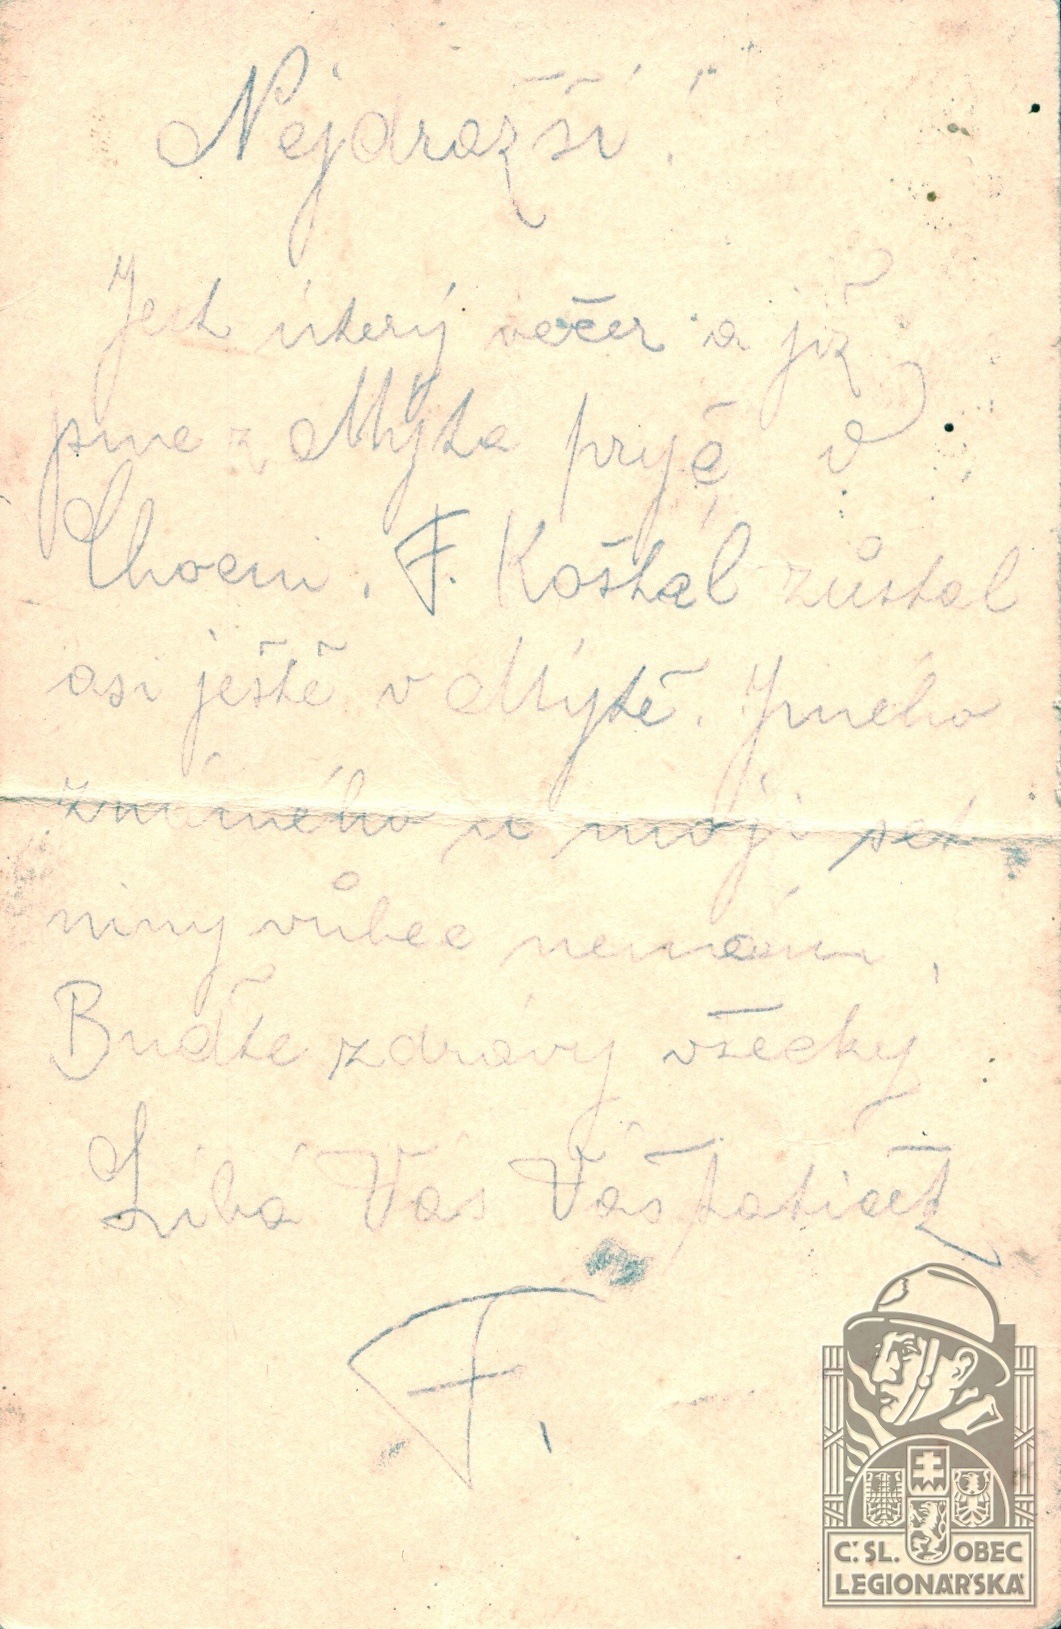 Nejdražší!
Jest úterý večer a již
jsme z Mýta pryč v
Chocni. F. Koštal zůstal
asi ještě v Mýtě. Jiného
známého u moji set
niny vůbec nemám.
Buďte zdrávy všecky
Líbá Vás Váš tatíček
F.
Č. SL. OBEC
LEGIONÁŘSKÁ